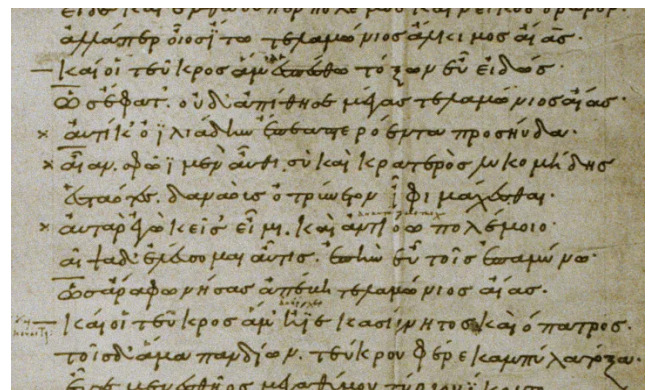 ἀλλά περ οἶος ἴτω τελαμώνιος ἄλκιμος αἴας·
καί οἱ τεῦκρος ἅμ' ἑσπέσθω τόξων εὖ εἰδώς·
ὣς ἔφατ'. οὐδ' ἀπίθησε μέγας τελαμώνιος αἴας·
αὐτίκ' ὀϊλιάδην ἔπεα πτερόεντα προσηύδα·
αἶαν. σφῶϊ μὲν αὖθι. σὺ καὶ κρατερὸς λυκομήδης
ἑσταότες. δαναοὺς ὀτρύνετον ἶφι μάχεσθαι·
αὐτὰρ ἐγὼ κεῖσ' εἶμι. καὶ ἀντιόω πολέμοιο·
αἶψα δ' ἐλεύσομαι αὖτις. ἐπὴν εὖ τοῖς ἐπαμύνω·
ὣς ἄρα φωνήσας ἀπέβη τελαμώνιος αἴας·
καί οἱ τεῦκρος ἅμ' ἤϊε κασίγνητος καὶ ὄπατρος·
τοῖς δ' ἅμα πανδίων. τεύκρου φέρε καμπύλα τόξα·